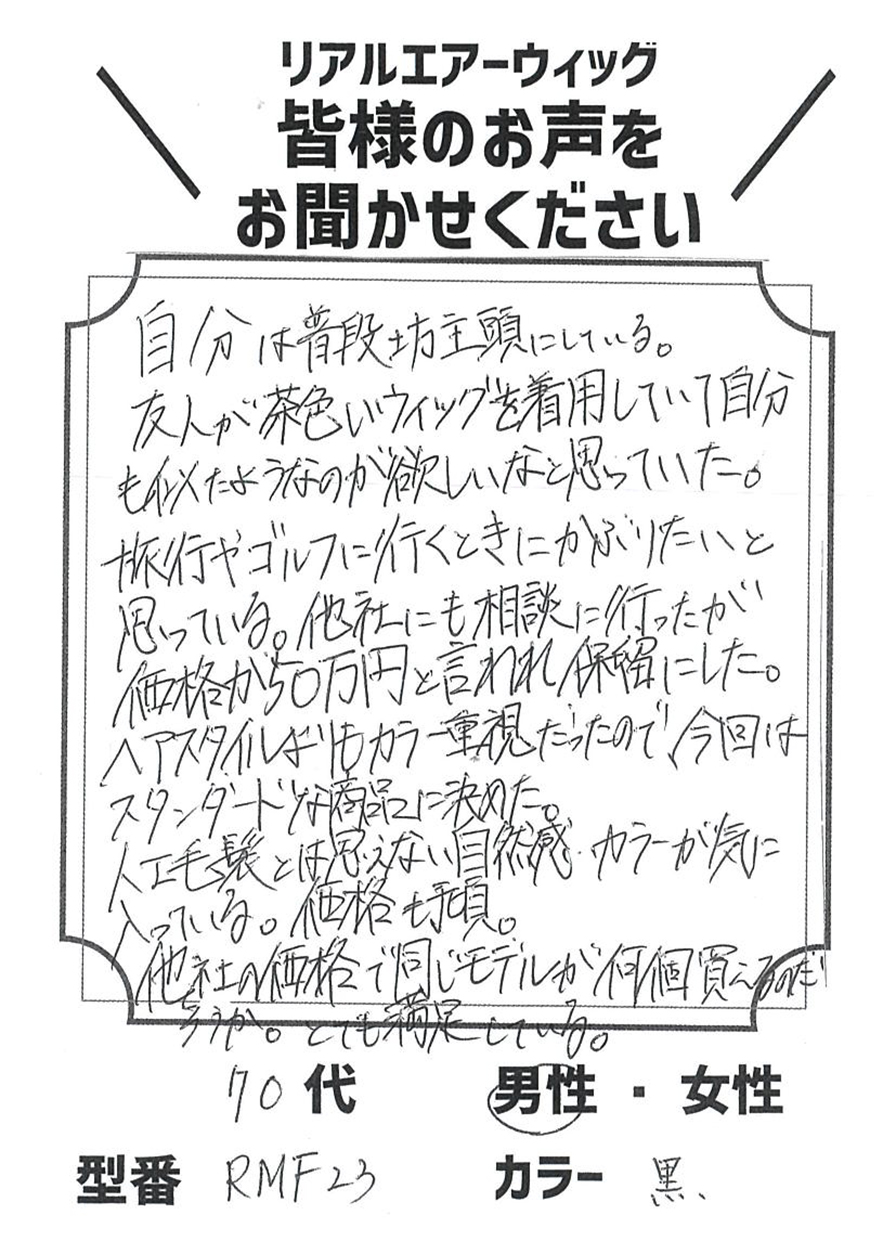 リアルエアーウィッグ
皆様のお声を
お聞かせください
自分は普段坊主頭にしている。
友人が茶色いウィッグを着用していて自分
も似たようなのが欲しいなと思っていた。
旅行やゴルフに行くときにかぶりたいと
思っている。他社にも相談に行ったが
価格が50万円と言われ保留にした。
ヘアスタイルよりもカラー重視だったので、今回は
スタンダードな商品に決めた。
人工毛髪とは思えない自然感・カラーが気に
入っている。価格も手頃。
他社の価格で同じモデルが何個買えるのだ
ろうか。とても満足している。
70代 男性・女性
型番 RMF23 カラー 黒